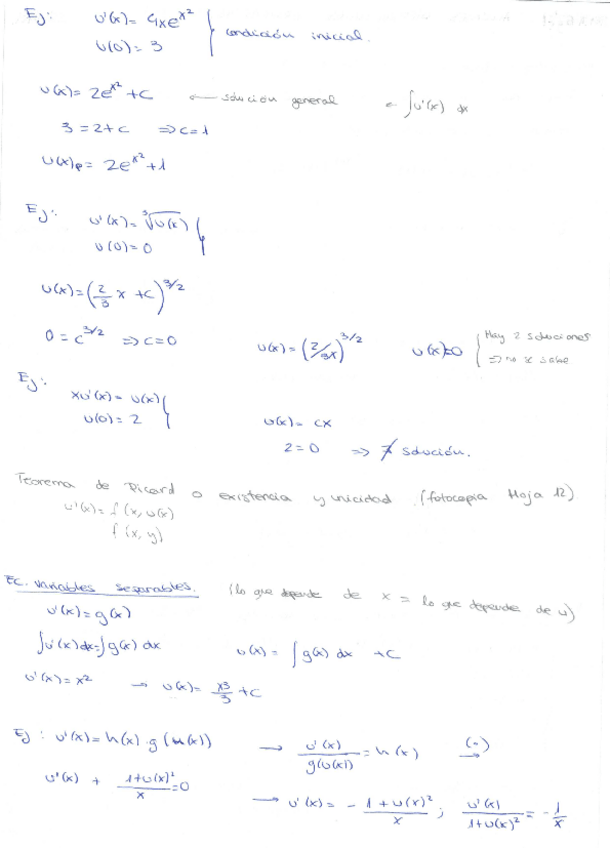 Ej: u'(x) = 4xe^{x^2}
u(0) = 3 } condición inicial.
u(x) = 2e^{x^2} + c ← solución general ← ∫u'(x) dx
3 = 2 + c ⇒ c = 1
u(x)_p = 2e^{x^2} + 1
Ej: u'(x) = ∛u(x)
u(0) = 0
u(x) = (2/3 x + c)^{3/2}
0 = c^{3/2} ⇒ c = 0 u(x) = (2/3x)^{3/2} u(x)=0 { Hay 2 soluciones
⇒ no se sabe
Ej:
xu'(x) = u(x)
u(0) = 2 u(x) = cx
2 = 0 ⇒ ∄ solución.
Teorema de Picard o existencia y unicidad (fotocopia Hoja 12)
u'(x) = f(x, u(x))
f(x, y)
Ec. variables separables. (lo que depende de x = lo que depende de u)
u'(x) = g(x)
∫u'(x)dx = ∫g(x) dx u(x) = ∫g(x) dx + C
u'(x) = x^2 → u(x) = x^3/3 + C
Ej: u'(x) = h(x) · g(u(x)) → u'(x)/g(u(x)) = h(x) →
u'(x) + 1+u(x)^2/x = 0
→ u'(x) = - 1+u(x)^2/x ; u'(x)/1+u(x)^2 = - 1/x